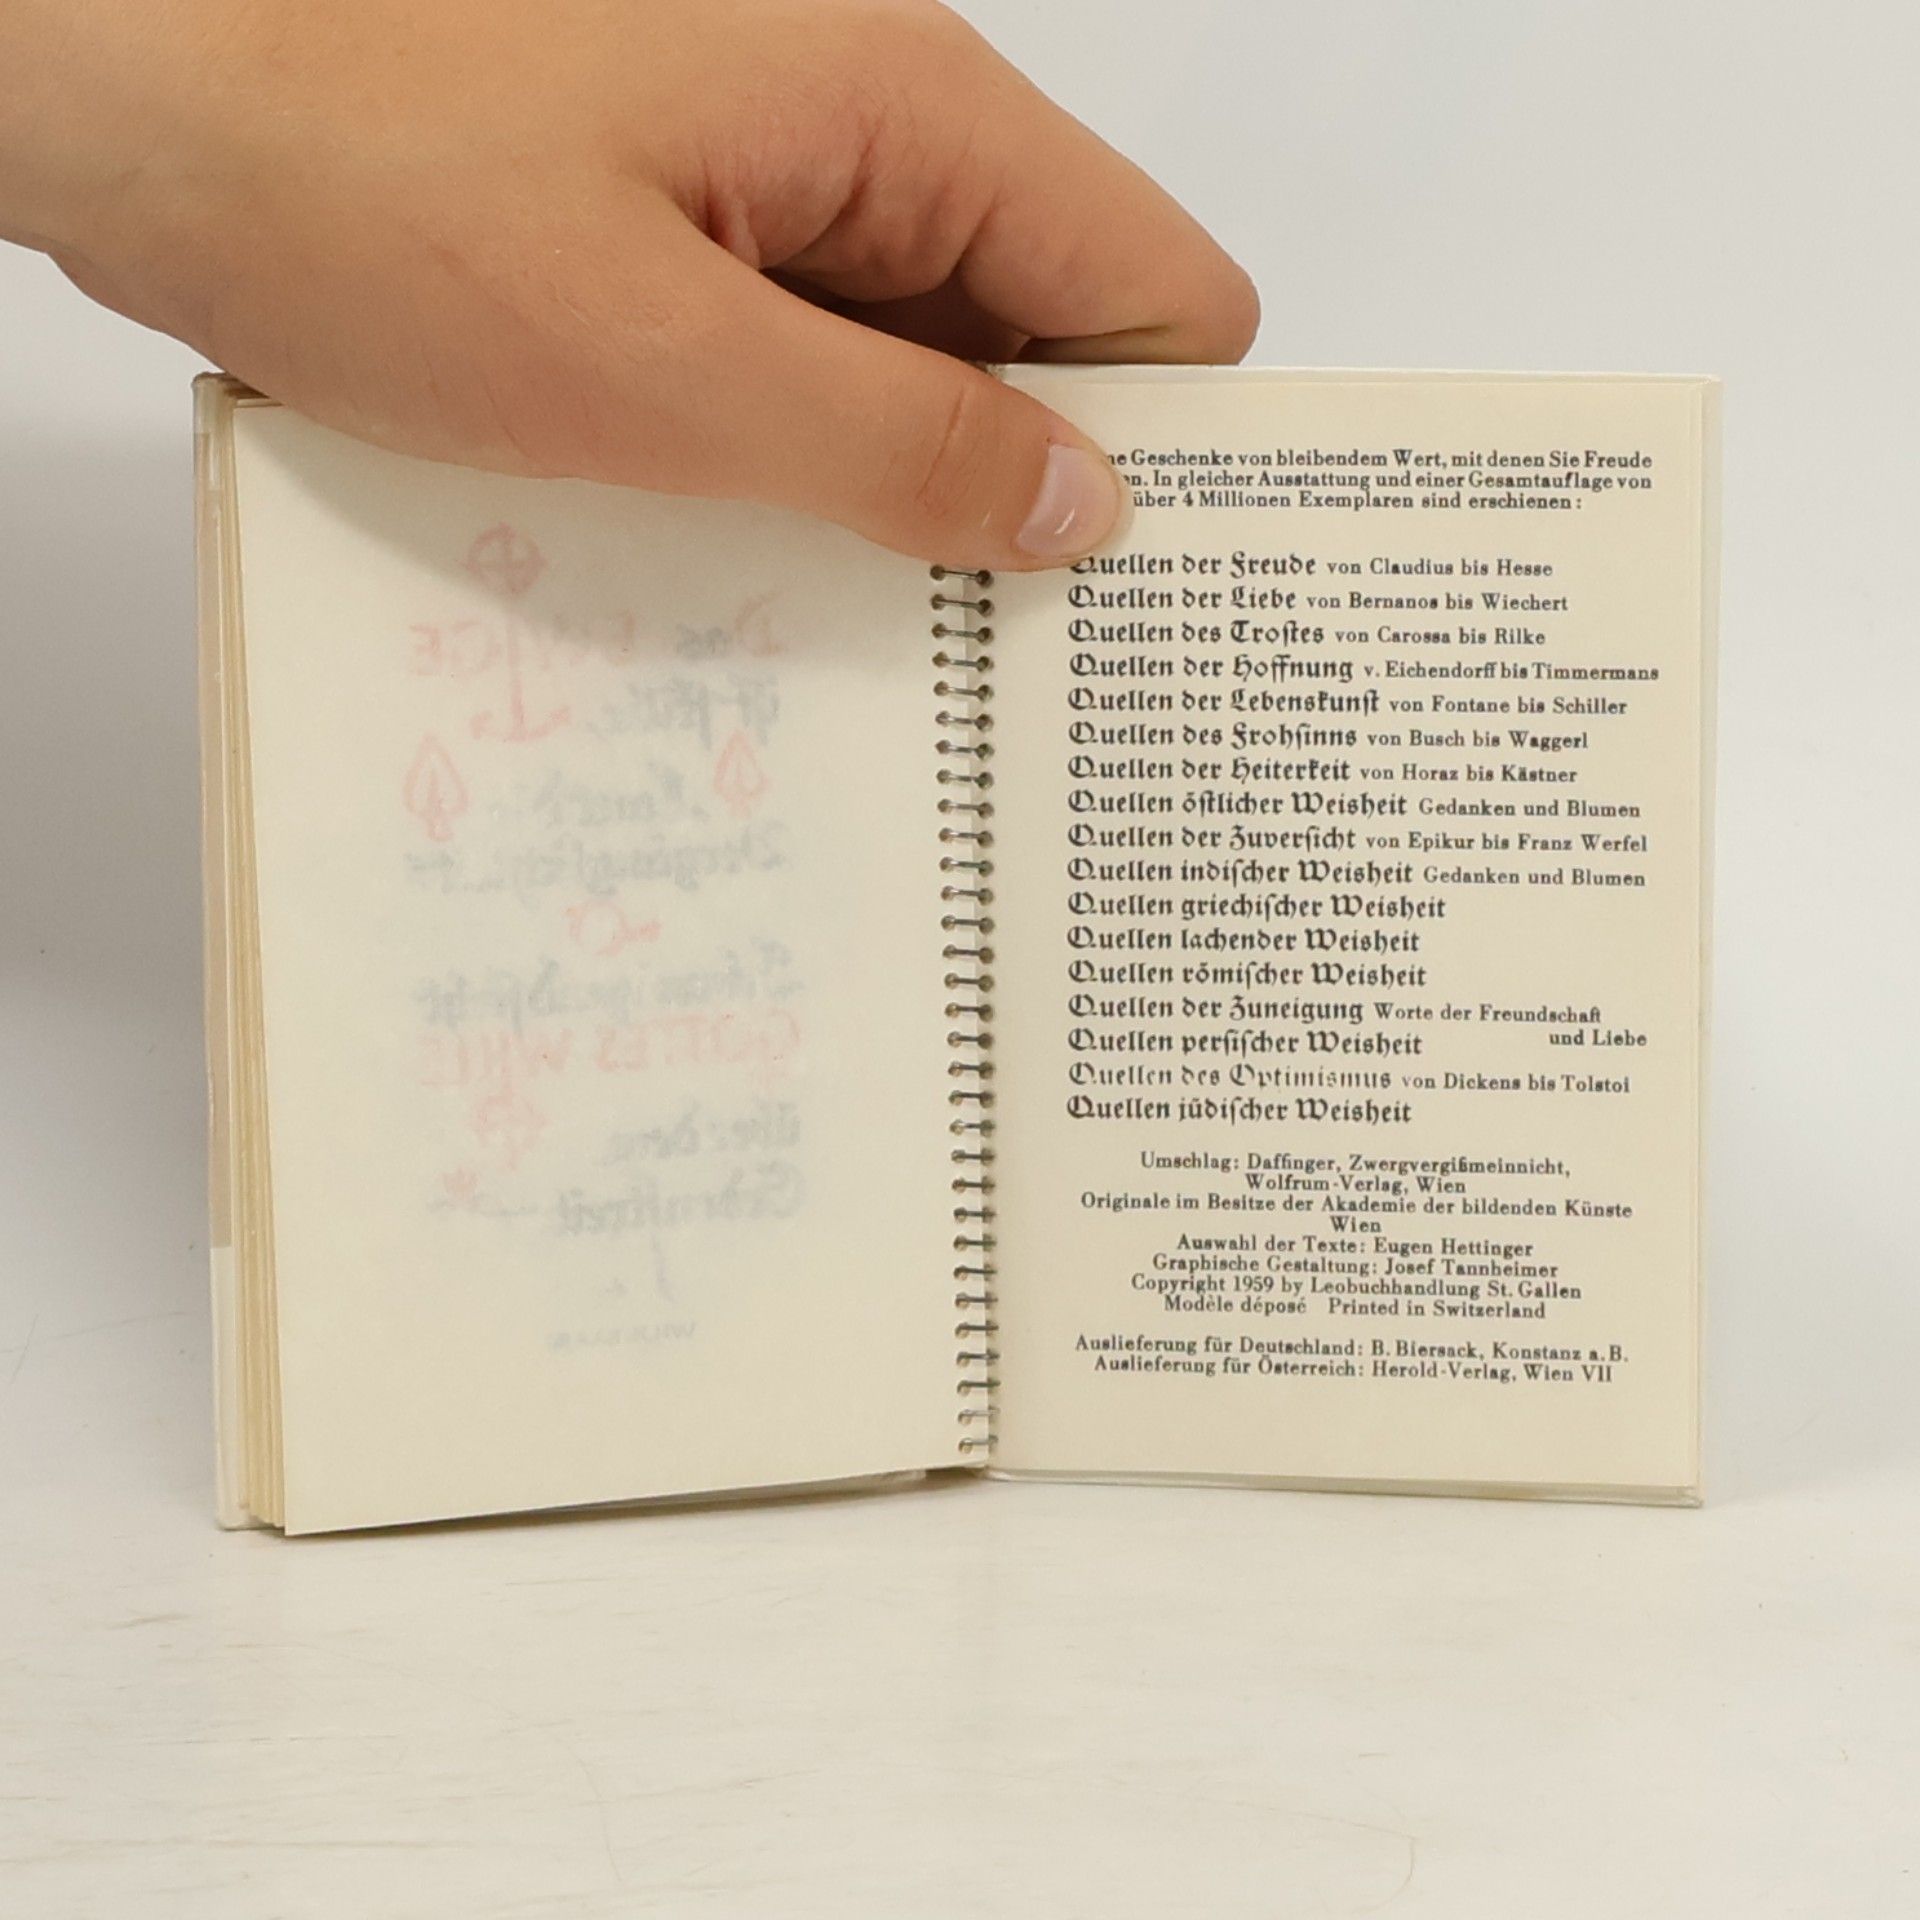 Das EWIGE
ist stille,
GOTTES WILLE
über den
Erdenstreit
Geschenke von bleibendem Wert, mit denen Sie Freude
In gleicher Ausstattung und einer Gesamtauflage von
über 4 Millionen Exemplaren sind erschienen:
Quellen der Freude von Claudius bis Hesse
Quellen der Liebe von Bernanos bis Wiechert
Quellen des Trostes von Carossa bis Rilke
Quellen der Hoffnung v. Eichendorff bis Timmermans
Quellen der Lebenskunst von Fontane bis Schiller
Quellen des Frohsinns von Busch bis Waggerl
Quellen der Heiterkeit von Horaz bis Kästner
Quellen östlicher Weisheit Gedanken und Blumen
Quellen der Zuversicht von Epikur bis Franz Werfel
Quellen indischer Weisheit Gedanken und Blumen
Quellen griechischer Weisheit
Quellen lachender Weisheit
Quellen römischer Weisheit
Quellen der Zuneigung Worte der Freundschaft
und Liebe
Quellen persischer Weisheit
Quellen des Optimismus von Dickens bis Tolstoi
Quellen jüdischer Weisheit
Umschlag: Daffinger, Zwergvergißmeinnicht,
Wolfrum-Verlag, Wien
Originale im Besitze der Akademie der bildenden Künste
Wien
Auswahl der Texte: Eugen Hettinger
Graphische Gestaltung: Josef Tannheimer
Copyright 1959 by Leobuchhandlung St. Gallen
Modèle déposé Printed in Switzerland
Auslieferung für Deutschland: B. Biersack, Konstanz a. B.
Auslieferung für Österreich: Herold-Verlag, Wien VII